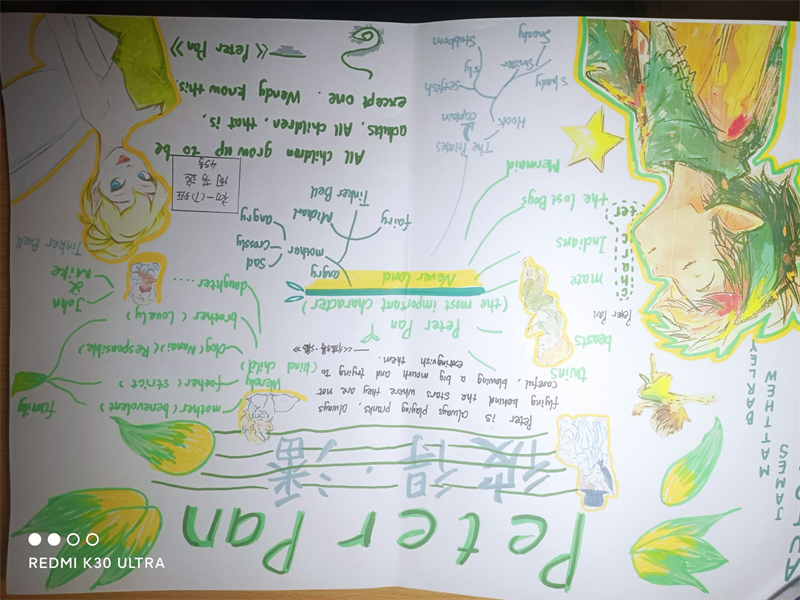 Peter Pan
彼得·潘
Peter is always playing pranks, always
flying behind the stars where they are not
careful, blowing a big mouth and trying to
extinguish them.
——《彼得·潘》
JAMEMS
MATTHEW
BARLEY
Peter Pan
character
Peter Pan
(the most important character)
Never Land
twins
beasts
mate
Indians
the Lost Boys
Mermaid
The Pirates
captain
Hook
Selfish
sly
Stubborn
Sinister
Shady
Sneaky
family
mother (benevolent)
father (strict)
dog (Nana) (Responsible)
brother (Lovely)
John
&
Mike
daughter ......
Wendy (kind child)
angry
mother
Sad
Crossly
angry
Michael
Tinker Bell
fairy
Tinker Bell
初一(7)班
45号
All children grow up to be
adults, All children, that is,
except one. Wendy know this.
《Peter Pan》
REDMI K30 ULTRA